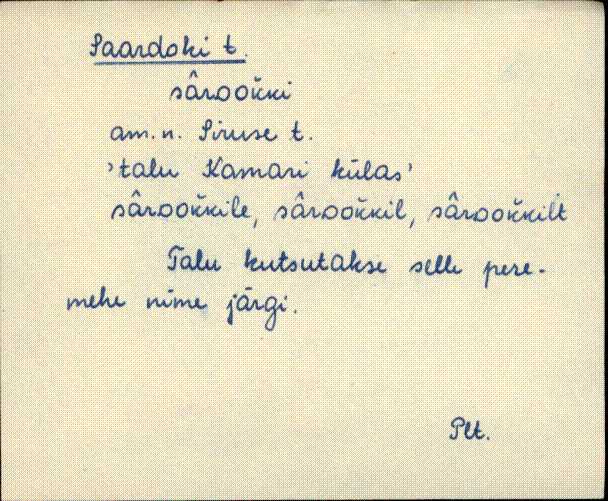 Saardoki t.
sâroDǒkki
am. n. Siruse t.
'talu Kamari külas'
sâroDǒkkile, sâroDǒkkil, sâroDǒkkilt
Talu kutsutakse selle pere-
mehe nime järgi.
Plt.